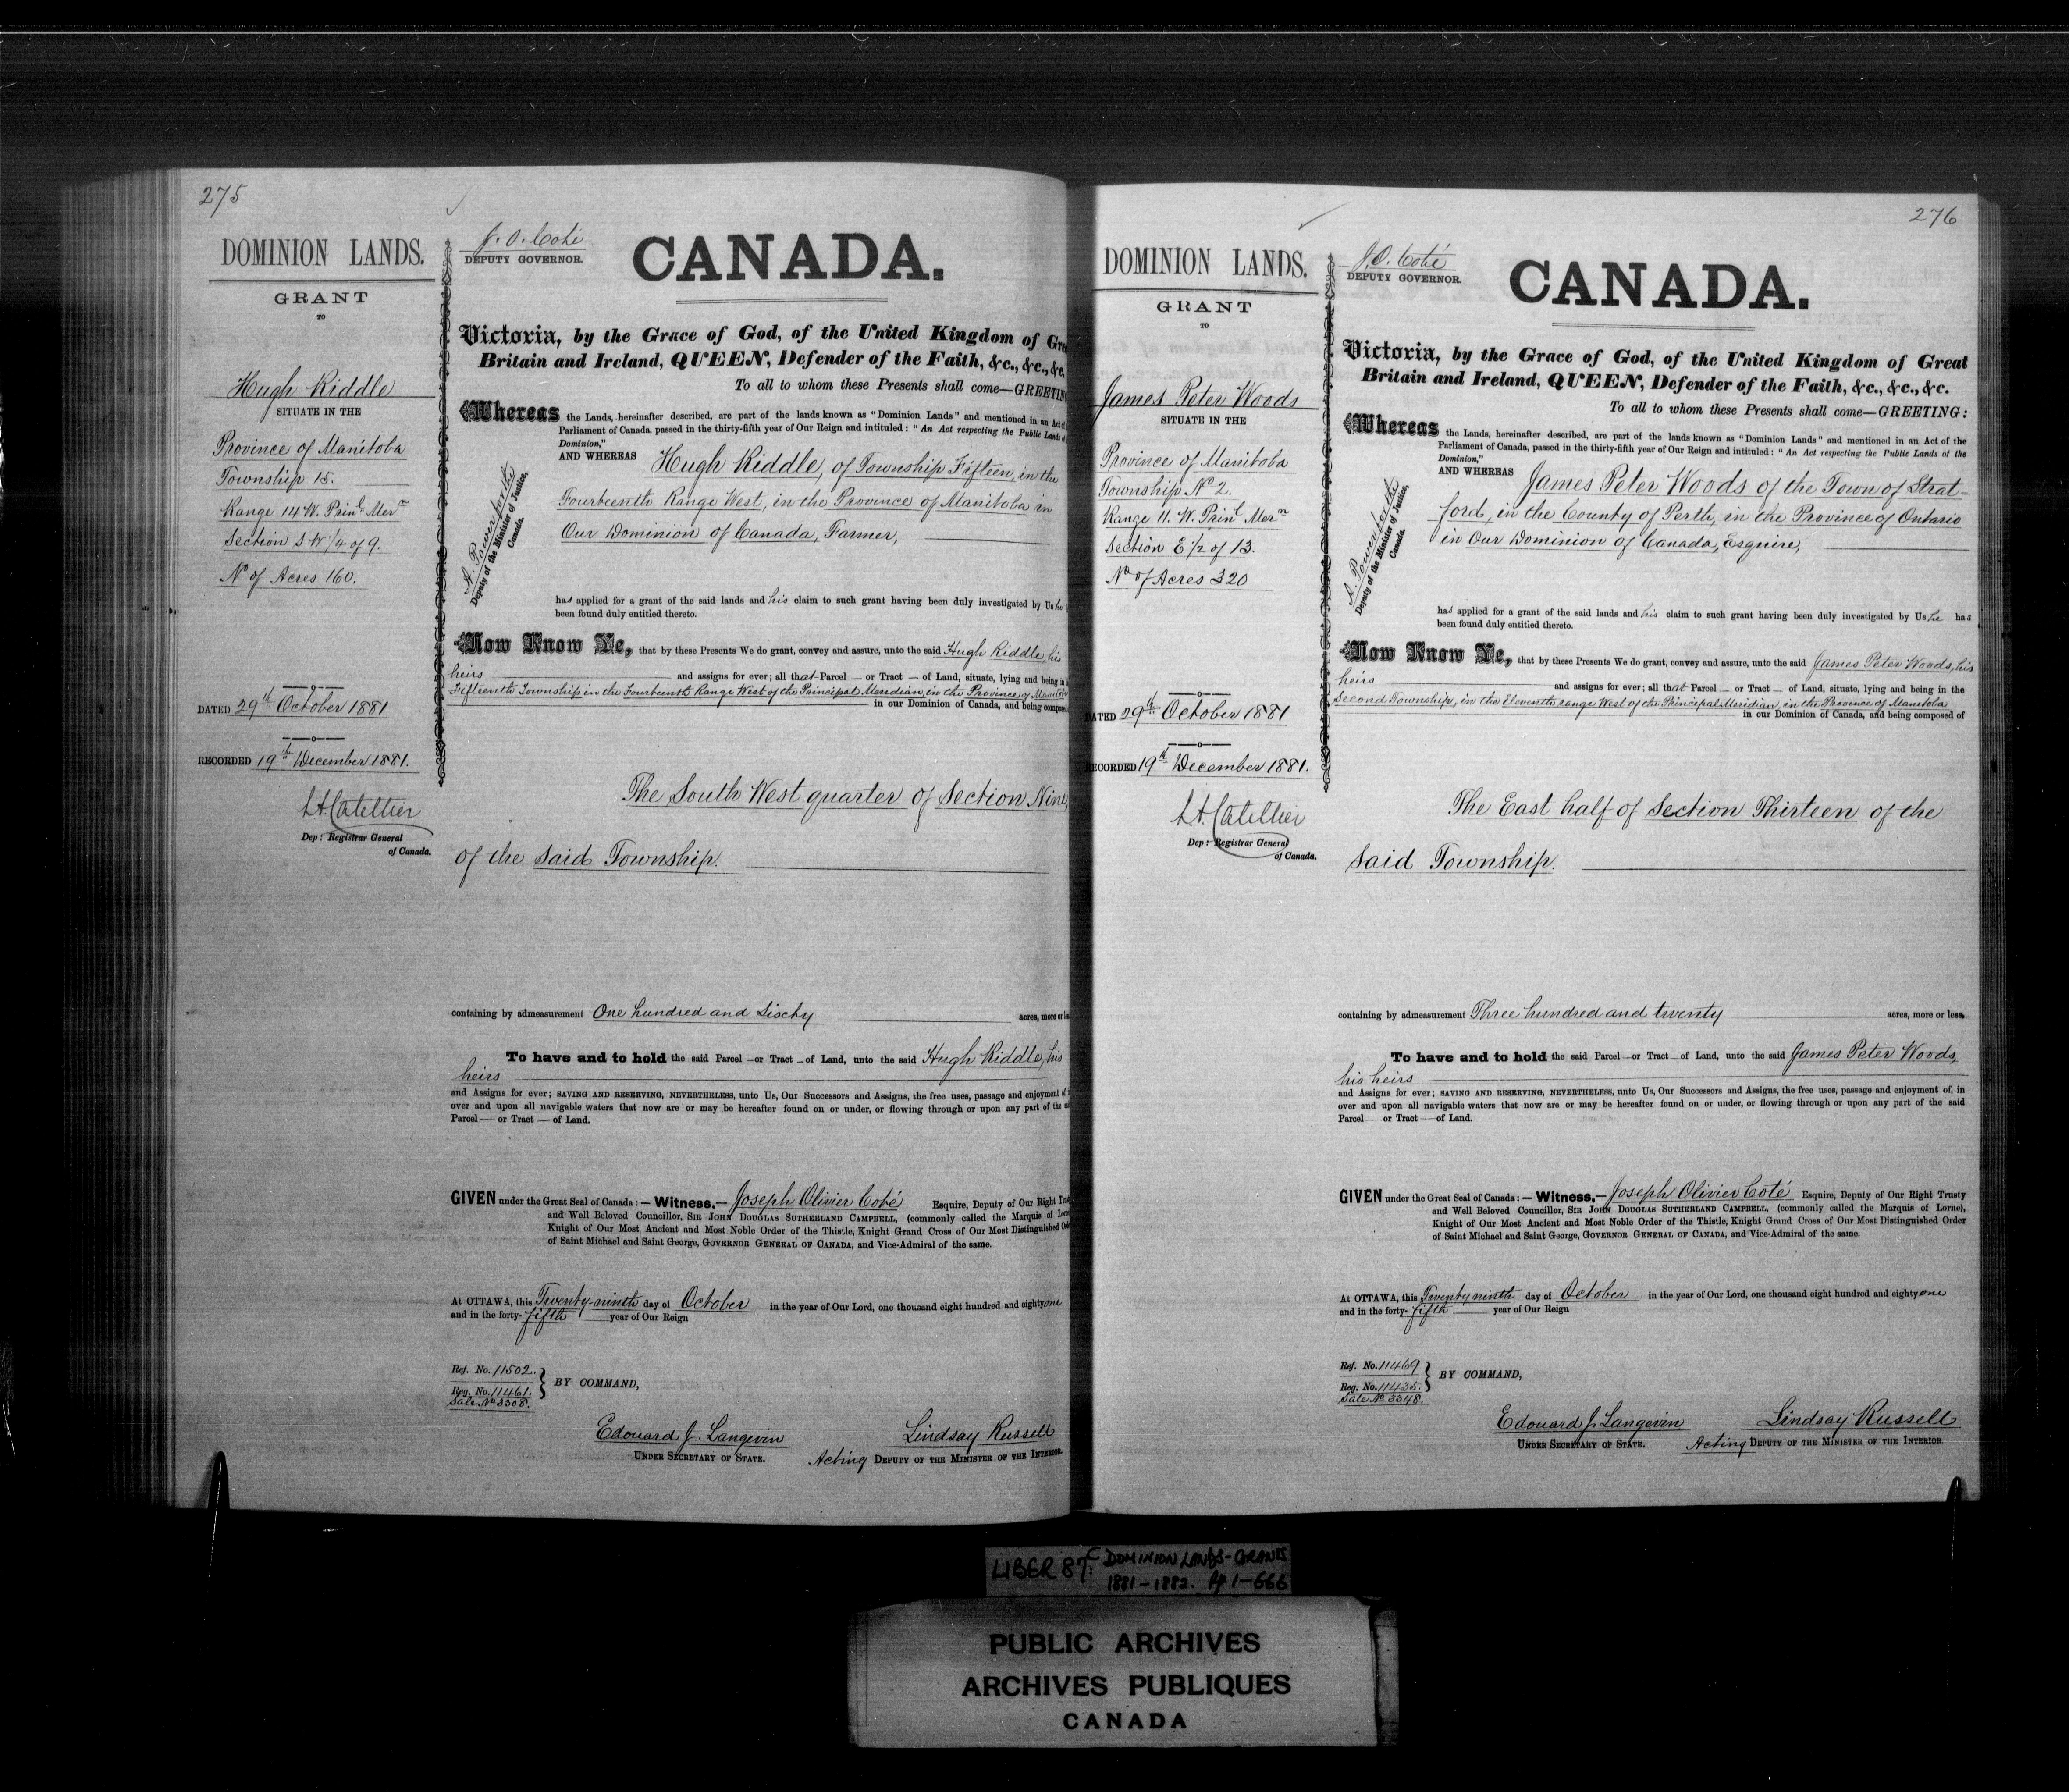 275
DOMINION LANDS.
GRANT
TO
Hugh Riddle
SITUATE IN THE
Province of Manitoba
Township 15.
Range 14 W. Prinl Mern
Section S W 1/4 of 9.
No of Acres 160.
DATED 29th October 1881
RECORDED 19th December 1881.
L.A. Catellier
Dep: Registrar General
of Canada.
J. O. Coté
DEPUTY GOVERNOR.
CANADA.
Victoria, by the Grace of God, of the United Kingdom of Gre
Britain and Ireland, QUEEN, Defender of the Faith, &c., &c., &c.
To all to whom these Presents shall come—GREETIN
Whereas the Lands, hereinafter described, are part of the lands known as "Dominion Lands" and mentioned in an Act of
Parliament of Canada, passed in the thirty-fifth year of Our Reign and intituled: "An Act respecting the Public Lands of
Dominion,"
AND WHEREAS Hugh Riddle, of Township Fifteen, in the
Fourteenth Range West, in the Province of Manitoba in
Our Dominion of Canada, Farmer,
A. Power for the
Deputy of the Minister of Justice,
Canada.
has applied for a grant of the said lands and his claim to such grant having been duly investigated by Us he
been found duly entitled thereto.
Now Know Ye, that by these Presents We do grant, convey and assure, unto the said Hugh Riddle, his
heirs and assigns for ever; all that Parcel — or Tract — of Land, situate, lying and being in
Fifteenth Township in the Fourteenth Range West of the Principal Meridian, in the Province of Manitoba
in our Dominion of Canada, and being composed
The South West quarter of Section Nine
of the said Township.
containing by admeasurement One hundred and Sixty acres, more or les
To have and to hold the said Parcel — or Tract — of Land, unto the said Hugh Riddle, his
heirs
and Assigns for ever; SAVING AND RESERVING, NEVERTHELESS, unto Us, Our Successors and Assigns, the free uses, passage and enjoyment of
over and upon all navigable waters that now are or may be hereafter found on or under, or flowing through or upon any part of the sai
Parcel — or Tract — of Land.
GIVEN under the Great Seal of Canada: — Witness, — Joseph Olivier Coté Esquire, Deputy of Our Right Trus
and Well Beloved Councillor, SIR JOHN DOUGLAS SUTHERLAND CAMPBELL, (commonly called the Marquis of Lorne
Knight of Our Most Ancient and Most Noble Order of the Thistle, Knight Grand Cross of Our Most Distinguished Ord
of Saint Michael and Saint George, GOVERNOR GENERAL OF CANADA, and Vice-Admiral of the same.
At OTTAWA, this Twenty-ninth day of October in the year of Our Lord, one thousand eight hundred and eighty one
and in the forty-fifth year of Our Reign
Ref. No. 11502.
Reg. No. 11461.
Sale No 3308.
BY COMMAND,
Edouard J. Langevin
UNDER SECRETARY OF STATE.
Lindsay Russell
Acting DEPUTY OF THE MINISTER OF THE INTERIOR.
276
DOMINION LANDS.
GRANT
TO
James Peter Woods
SITUATE IN THE
Province of Manitoba
Township No 2.
Range 11. W. Prinl Mern
Section E 1/2 of 13.
No of Acres 320
DATED 29th October 1881
RECORDED 19th December 1881.
L.A. Catellier
Dep: Registrar General
of Canada.
J. O. Coté
DEPUTY GOVERNOR.
CANADA.
Victoria, by the Grace of God, of the United Kingdom of Great
Britain and Ireland, QUEEN, Defender of the Faith, &c., &c., &c.
To all to whom these Presents shall come—GREETING:
Whereas the Lands, hereinafter described, are part of the lands known as "Dominion Lands" and mentioned in an Act of the
Parliament of Canada, passed in the thirty-fifth year of Our Reign and intituled: "An Act respecting the Public Lands of the
Dominion,"
AND WHEREAS James Peter Woods of the Town of Strat-
ford, in the County of Perth, in the Province of Ontario
in Our Dominion of Canada, Esquire,
A. Power for the
Deputy of the Minister of Justice,
Canada.
has applied for a grant of the said lands and his claim to such grant having been duly investigated by Us he has
been found duly entitled thereto.
Now Know Ye, that by these Presents We do grant, convey and assure, unto the said James Peter Woods, his
heirs and assigns for ever; all that Parcel — or Tract — of Land, situate, lying and being in the
Second Township, in the Eleventh range West of the Principal Meridian, in the Province of Manitoba
in our Dominion of Canada, and being composed of
The East half of Section Thirteen of the
said Township.
containing by admeasurement Three hundred and twenty acres, more or less.
To have and to hold the said Parcel — or Tract — of Land, unto the said James Peter Woods,
his heirs
and Assigns for ever; SAVING AND RESERVING, NEVERTHELESS, unto Us, Our Successors and Assigns, the free uses, passage and enjoyment of, in
over and upon all navigable waters that now are or may be hereafter found on or under, or flowing through or upon any part of the said
Parcel — or Tract — of Land.
GIVEN under the Great Seal of Canada: — Witness, — Joseph Olivier Coté Esquire, Deputy of Our Right Trusty
and Well Beloved Councillor, SIR JOHN DOUGLAS SUTHERLAND CAMPBELL, (commonly called the Marquis of Lorne),
Knight of Our Most Ancient and Most Noble Order of the Thistle, Knight Grand Cross of Our Most Distinguished Order
of Saint Michael and Saint George, GOVERNOR GENERAL OF CANADA, and Vice-Admiral of the same.
At OTTAWA, this Twenty ninth day of October in the year of Our Lord, one thousand eight hundred and eighty one
and in the forty-fifth year of Our Reign
Ref. No. 11469
Reg. No. 11435.
Sale No 3348.
BY COMMAND,
Edouard J. Langevin
UNDER SECRETARY OF STATE.
Lindsay Russell
Acting DEPUTY OF THE MINISTER OF THE INTERIOR.
LIBER 87C: DOMINION LANDS-GRANTS
1881-1882. Pp 1-666
PUBLIC ARCHIVES
ARCHIVES PUBLIQUES
CANADA